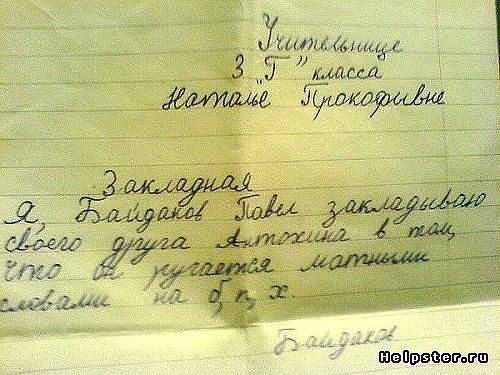 Учительнице
3 "Г" класса
Наталье Прокофивне
Закладная
Я, Байдаков Павел закладываю
своего друга Антохина в том,
что он ругается матными
словами на б, п, х.
Байдаков
Helpster.ru